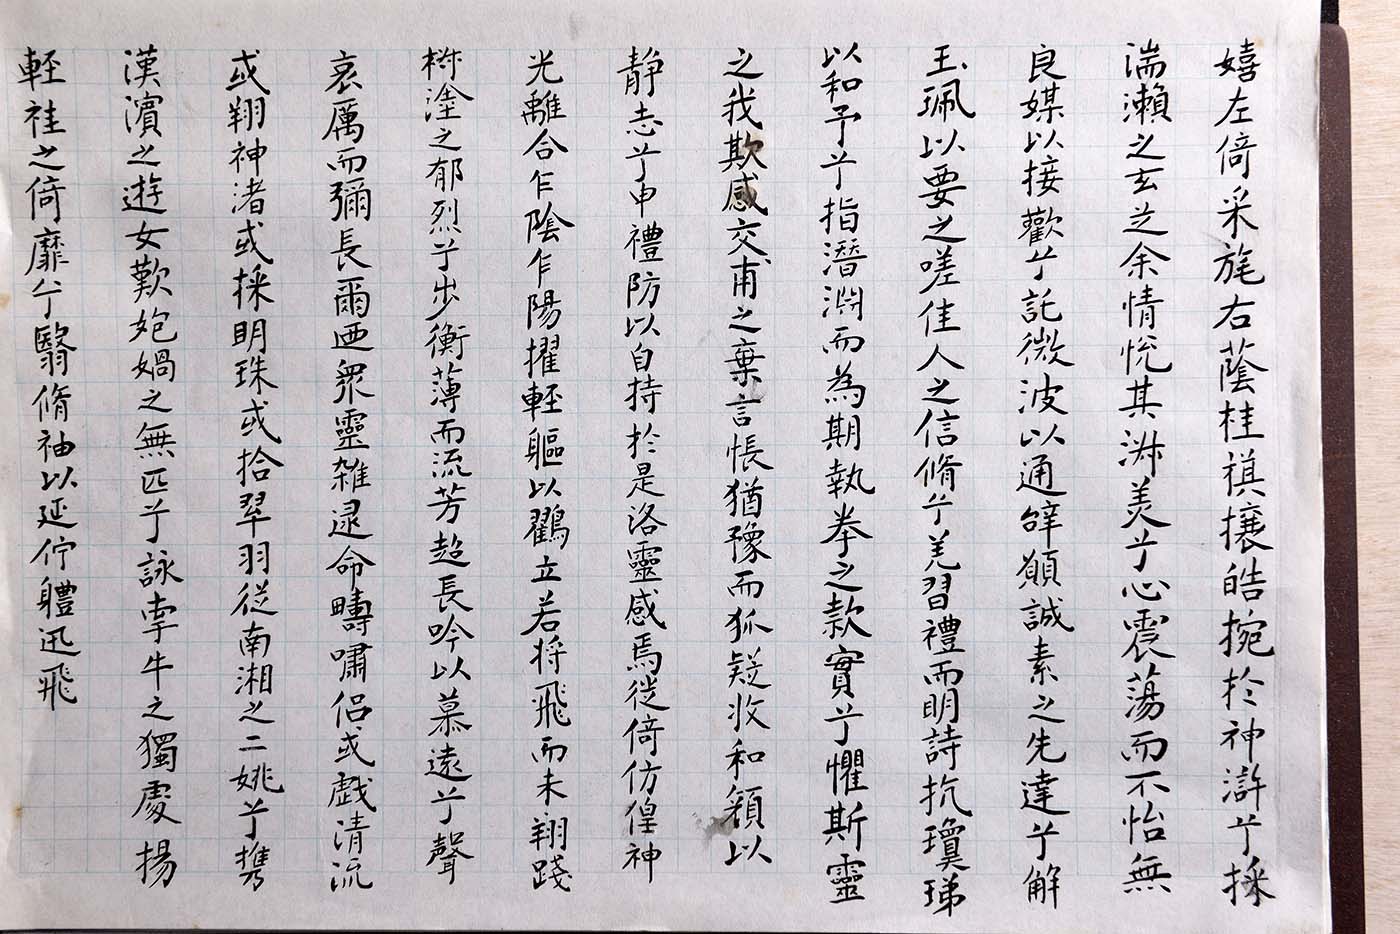 嬉左倚采旄右蔭桂旗攘皓捥於神滸兮採
湍瀨之玄芝余情悅其淑美兮心震蕩而不怡無
良媒以接歡兮託微波以通辭願誠素之先達兮解
玉珮以要之嗟佳人之信脩兮羌習禮而明詩抗瓊珶
以和予兮指潛淵而為期執拳之款實兮懼斯靈
之我欺感交甫之棄言悵猶豫而狐疑收和顏以
靜志兮申禮防以自持於是洛靈感焉徙倚仿偟神
光離合乍陰乍陽擢輕軀以鸖立若將飛而未翔踐
椒塗之郁烈兮步衡薄而流芳超長吟以慕遠兮聲
哀厲而彌長爾迺眾靈雜遝命疇嘯侶或戲清流
或翔神渚或採明珠或拾翠羽從南湘之二姚兮攜
漢濱之遊女歎匏媧之無匹兮詠牽牛之獨處揚
輕袿之倚靡兮翳脩袖以延佇軆迅飛